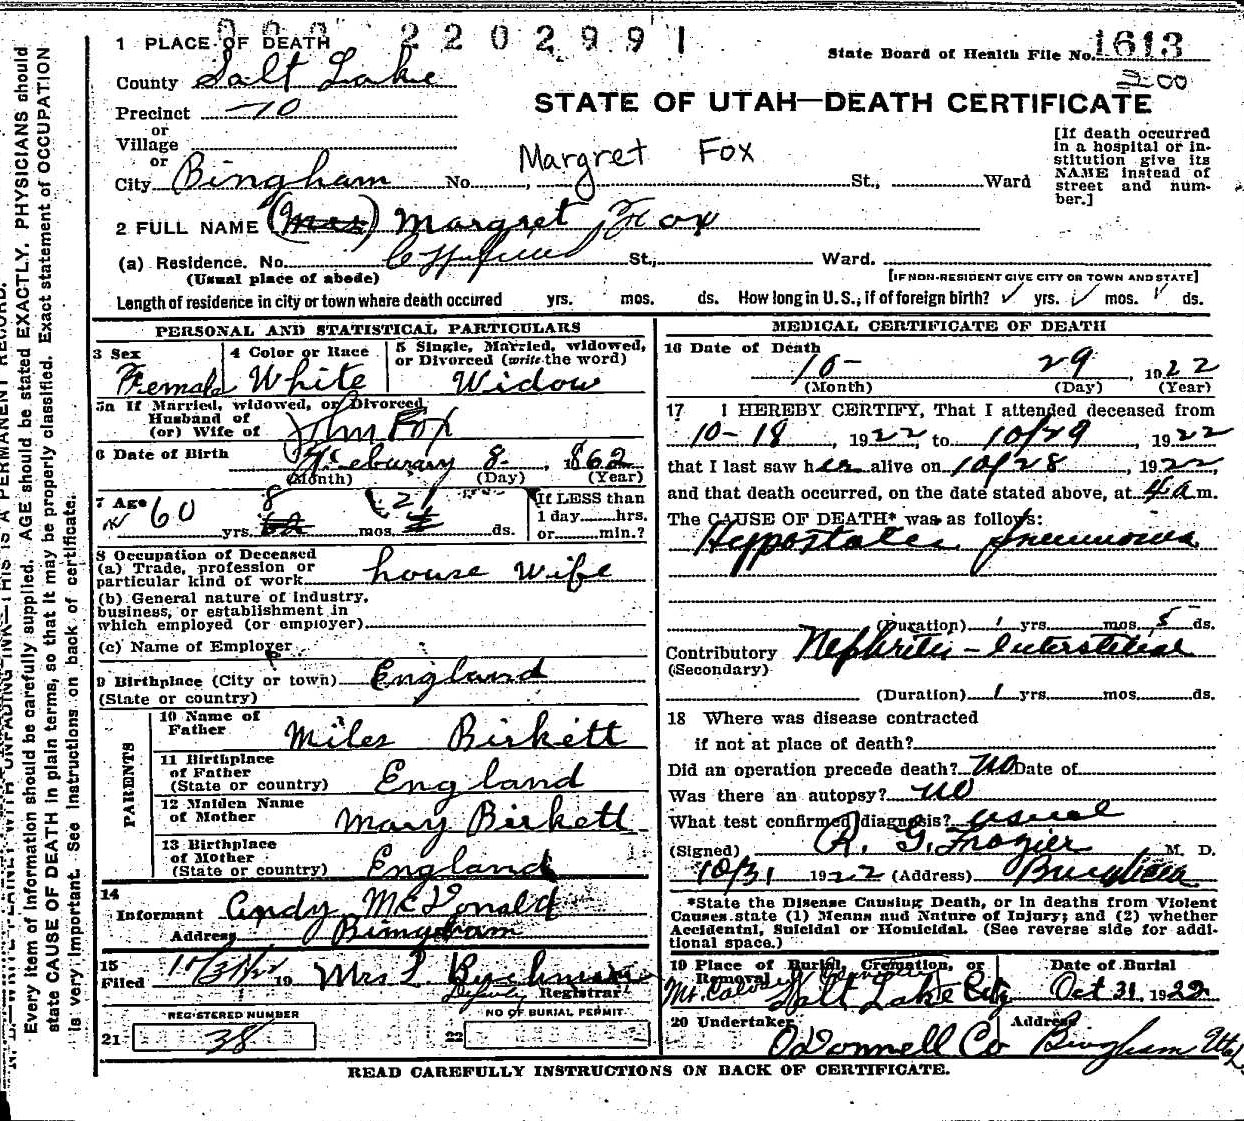 2202991
1 PLACE OF DEATH
State Board of Health File No. 1613
County Salt Lake
2.00
Precinct 10
STATE OF UTAH—DEATH CERTIFICATE
or
Village
or
City Bingham No. , St., Ward
Margret Fox
[If death occurred in a hospital or institution give its NAME instead of street and number.]
2 FULL NAME (Mrs) Margret Fox
(a) Residence. No. Copperfield St., Ward.
(Usual place of abode) [IF NON-RESIDENT GIVE CITY OR TOWN AND STATE]
Length of residence in city or town where death occured yrs. mos. ds. How long in U. S., if of foreign birth? yrs. mos. ds.
PERSONAL AND STATISTICAL PARTICULARS
3 Sex Female
4 Color or Race White
5 Single, Married, widowed, or Divorced (write the word) Widow
5a If Married, widowed, or Divorced
Husband of
(or) Wife of John Fox
6 Date of Birth Feburary 8 , 1862
(Month) (Day) (Year)
7 Age 60 yrs. 8 mos. 21 ds.
If LESS than
1 day hrs.
or min.?
8 Occupation of Deceased
(a) Trade, profession or
particular kind of work house wife
(b) General nature of industry,
business, or establishment in
which employed (or employer)
(c) Name of Employer
9 Birthplace (City or town) England
(State or country)
PARENTS
10 Name of
Father Miles Birkett
11 Birthplace
of Father England
(State or country)
12 Maiden Name
of Mother Mary Birkett
13 Birthplace
of Mother England
(State or country)
14
Informant Andy McDonald
Address Bingham
15
Filed 10/31/22 19 Mrs
Deputy Registrar
REGISTERED NUMBER
21 38
NO OF BURIAL PERMIT
22
MEDICAL CERTIFICATE OF DEATH
16 Date of Death
10- 29 , 1922
(Month) (Day) (Year)
17 I HEREBY CERTIFY, That I attended deceased from
10-18 , 1922, to 10/29 , 1922
that I last saw her alive on 10/28 , 1922,
and that death occurred, on the date stated above, at 4 a m.
The CAUSE OF DEATH* was as follows:
Hypostatic pneumonia
(Duration) yrs. mos. 5 ds.
Contributory Nephritis - Interstitial
(Secondary)
(Duration) 1 yrs. mos. ds.
18 Where was disease contracted
if not at place of death?
Did an operation precede death? no Date of
Was there an autopsy? no
What test confirmed diagnosis? usual
(Signed) R. G. Frazier M. D.
10/31 1922 (Address) Bingham
*State the Disease Causing Death, or in deaths from Violent
Causes state (1) Means and Nature of Injury; and (2) whether
Accidental, Suicidal or Homicidal. (See reverse side for additional space.)
19 Place of Burial, Cremation, or Removal
Mt. Calvary Salt Lake City
Date of Burial
Oct 31 1922
20 Undertaker O'Donnell Co
Address Bingham Utah
READ CAREFULLY INSTRUCTIONS ON BACK OF CERTIFICATE.
Every item of information should be carefully supplied. AGE should be stated EXACTLY. PHYSICIANS should
state CAUSE OF DEATH in plain terms, so that it may be properly classified. Exact statement of OCCUPATION
is very important. See instructions on back of certificate.